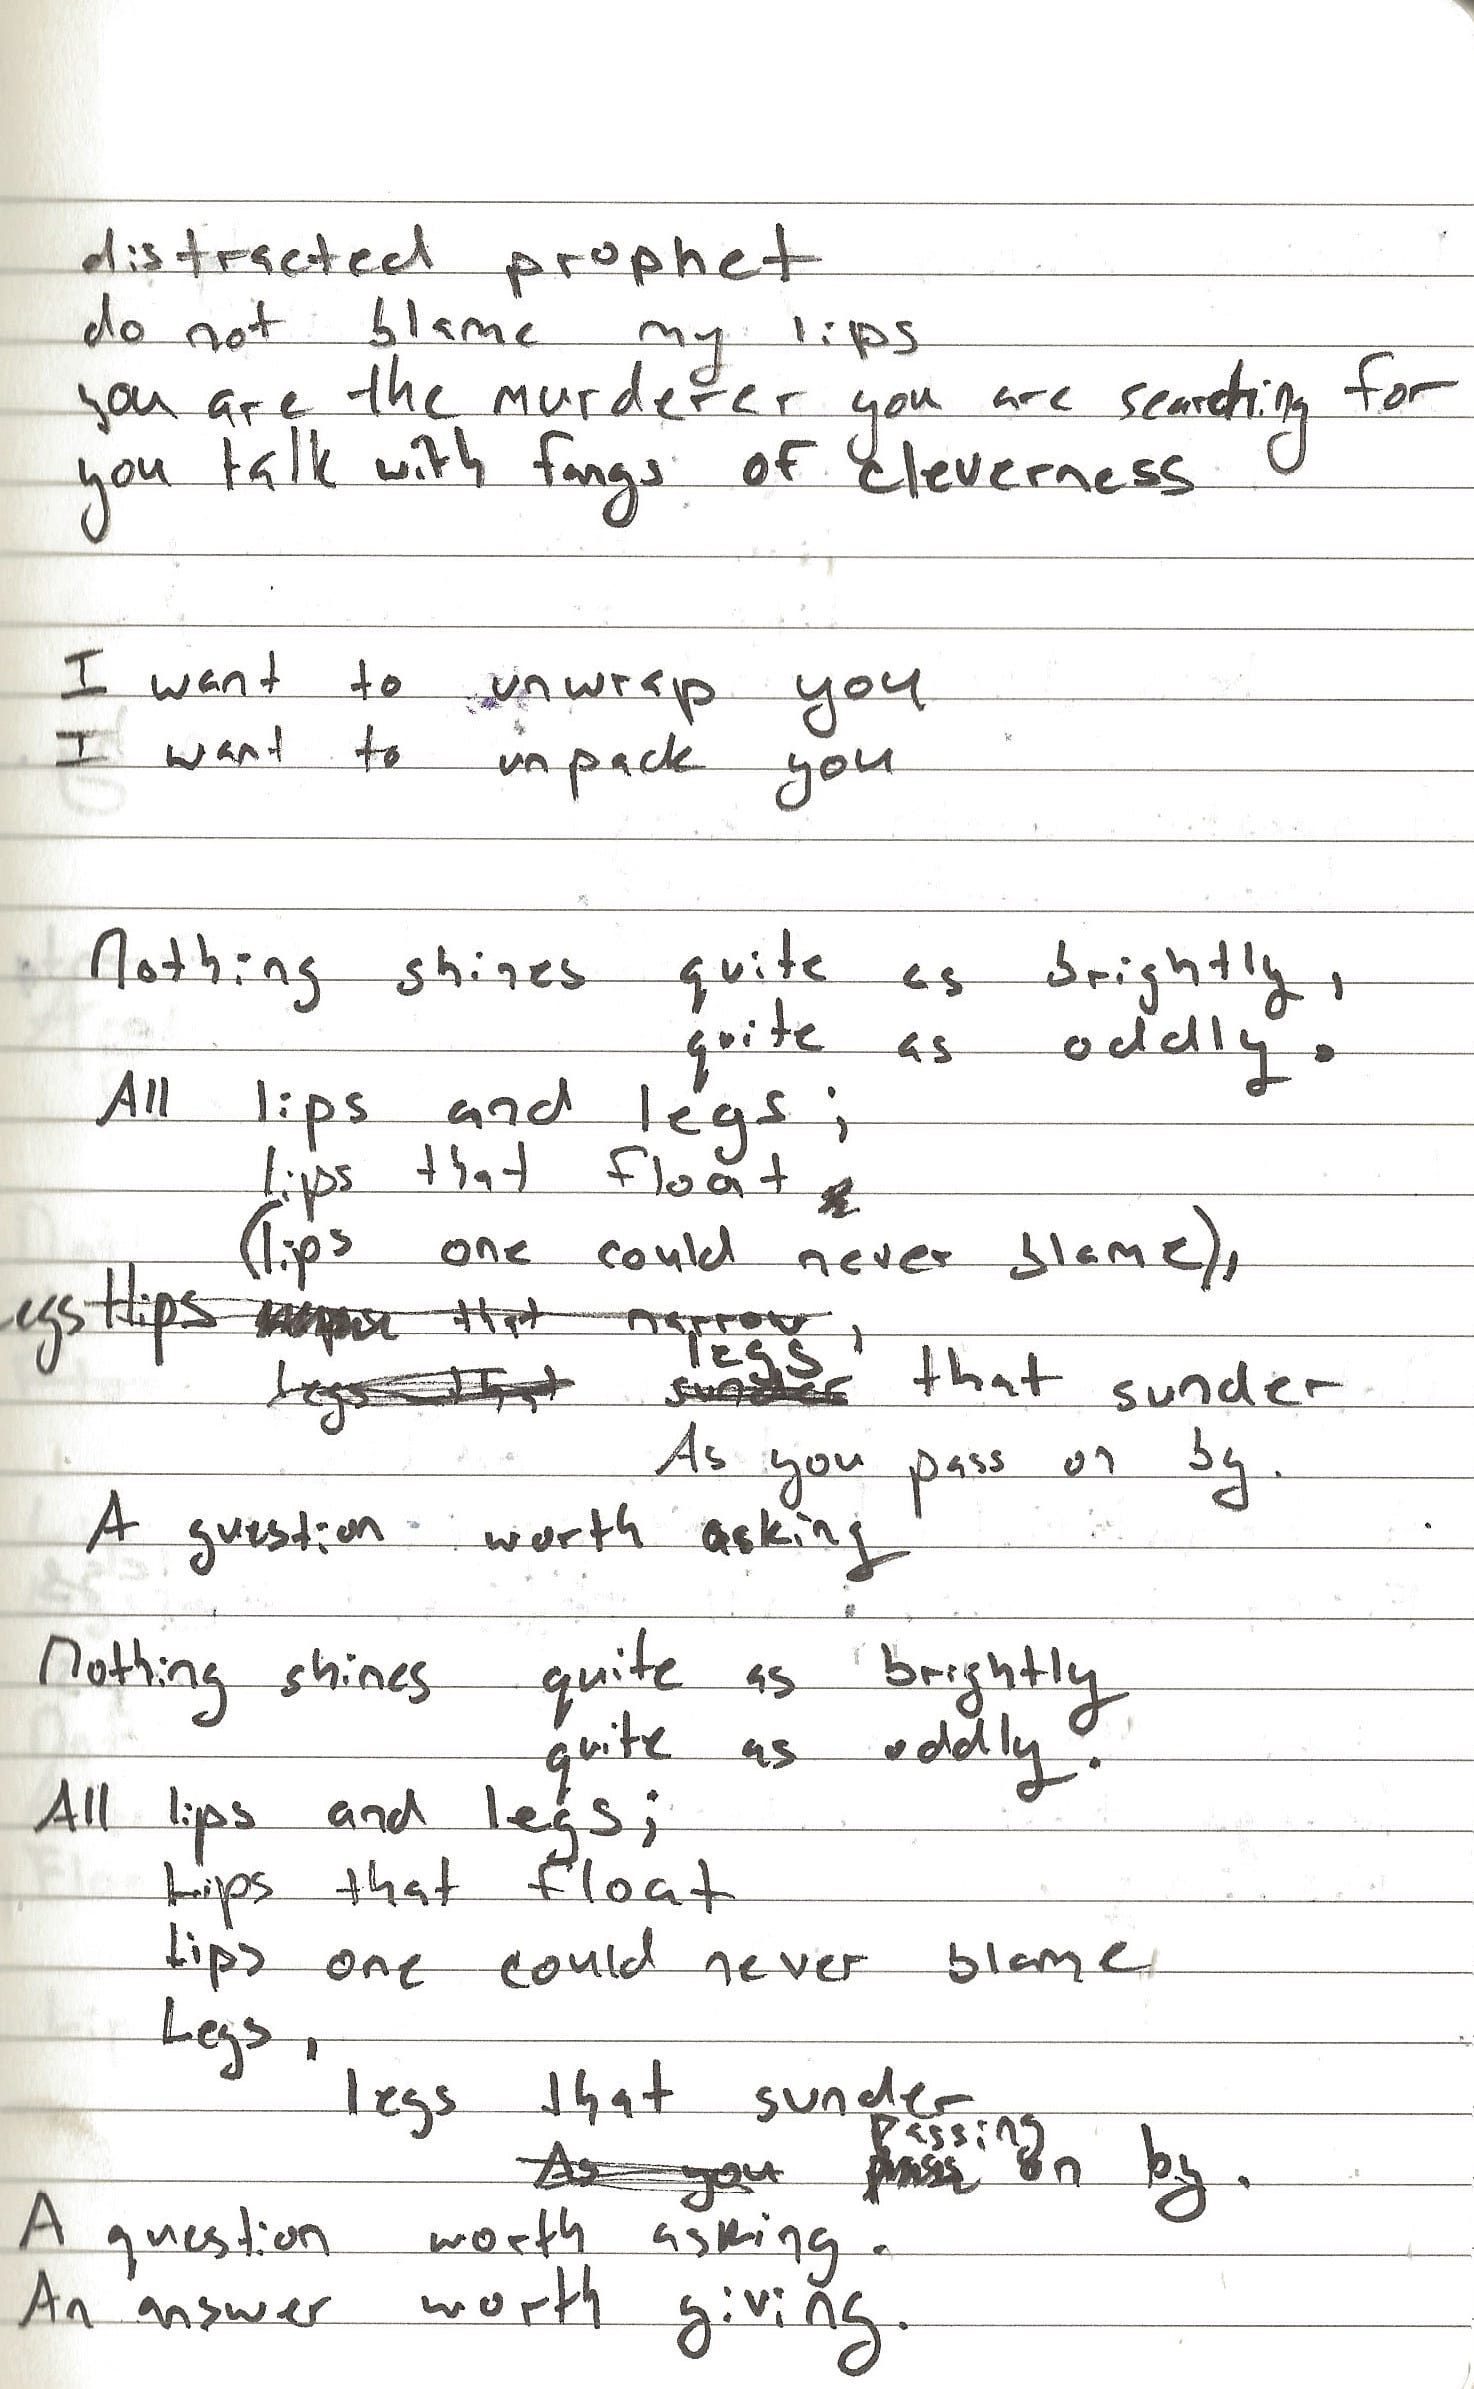 distracted prophet
do not blame my lips
you are the murderer you are searching for
you talk with fangs of cleverness
I want to unwrap you
I want to unpack you
Nothing shines quite as brightly,
quite as oddly.
All lips and legs;
lips that float
(lips one could never blame),
legs Hips that narrow,
legs
Legs that sunder that sunder
As you pass on by.
A question worth asking
Nothing shines quite as brightly
quite as oddly.
All lips and legs;
Lips that float
Lips one could never blame
Legs,
legs that sunder
passing
As you pass on by.
A question worth asking.
An answer worth giving.